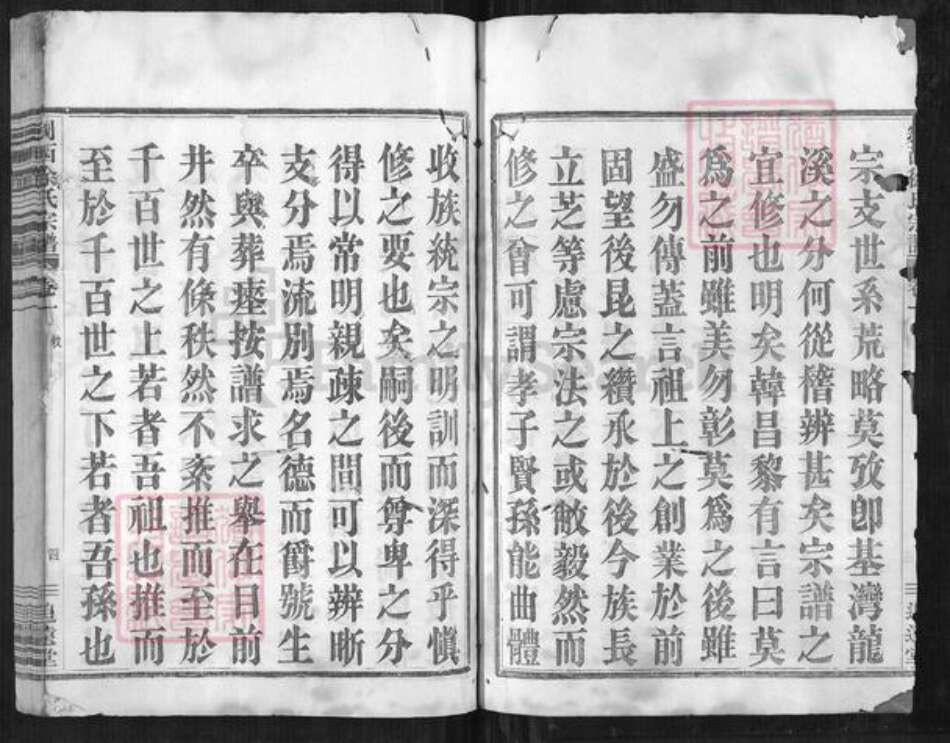 宗支世系荒略莫攷卽基灣龍
溪之分何從稽辨甚矣宗譜之
宜修也明矣韓昌黎有言曰莫
爲之前雖美勿彰莫爲之後雖
盛勿傳蓋言祖上之創業於前
固望後昆之纘承於後今族長
立芝等慮宗法之或斁毅然而
修之會可謂孝子賢孫能曲體
收族統宗之明訓而深得乎愼
修之要也矣嗣後而尊卑之分
得以常明親疎之間可以辨晰
支分焉流別焉名德而爵號生
卒與葬瘞按譜求之舉在目前
井然有條秩然不紊推而至於
千百世之上若者吾祖也推而
至於千百世之下若者吾孫也
氏宗譜 卷一
四
堂